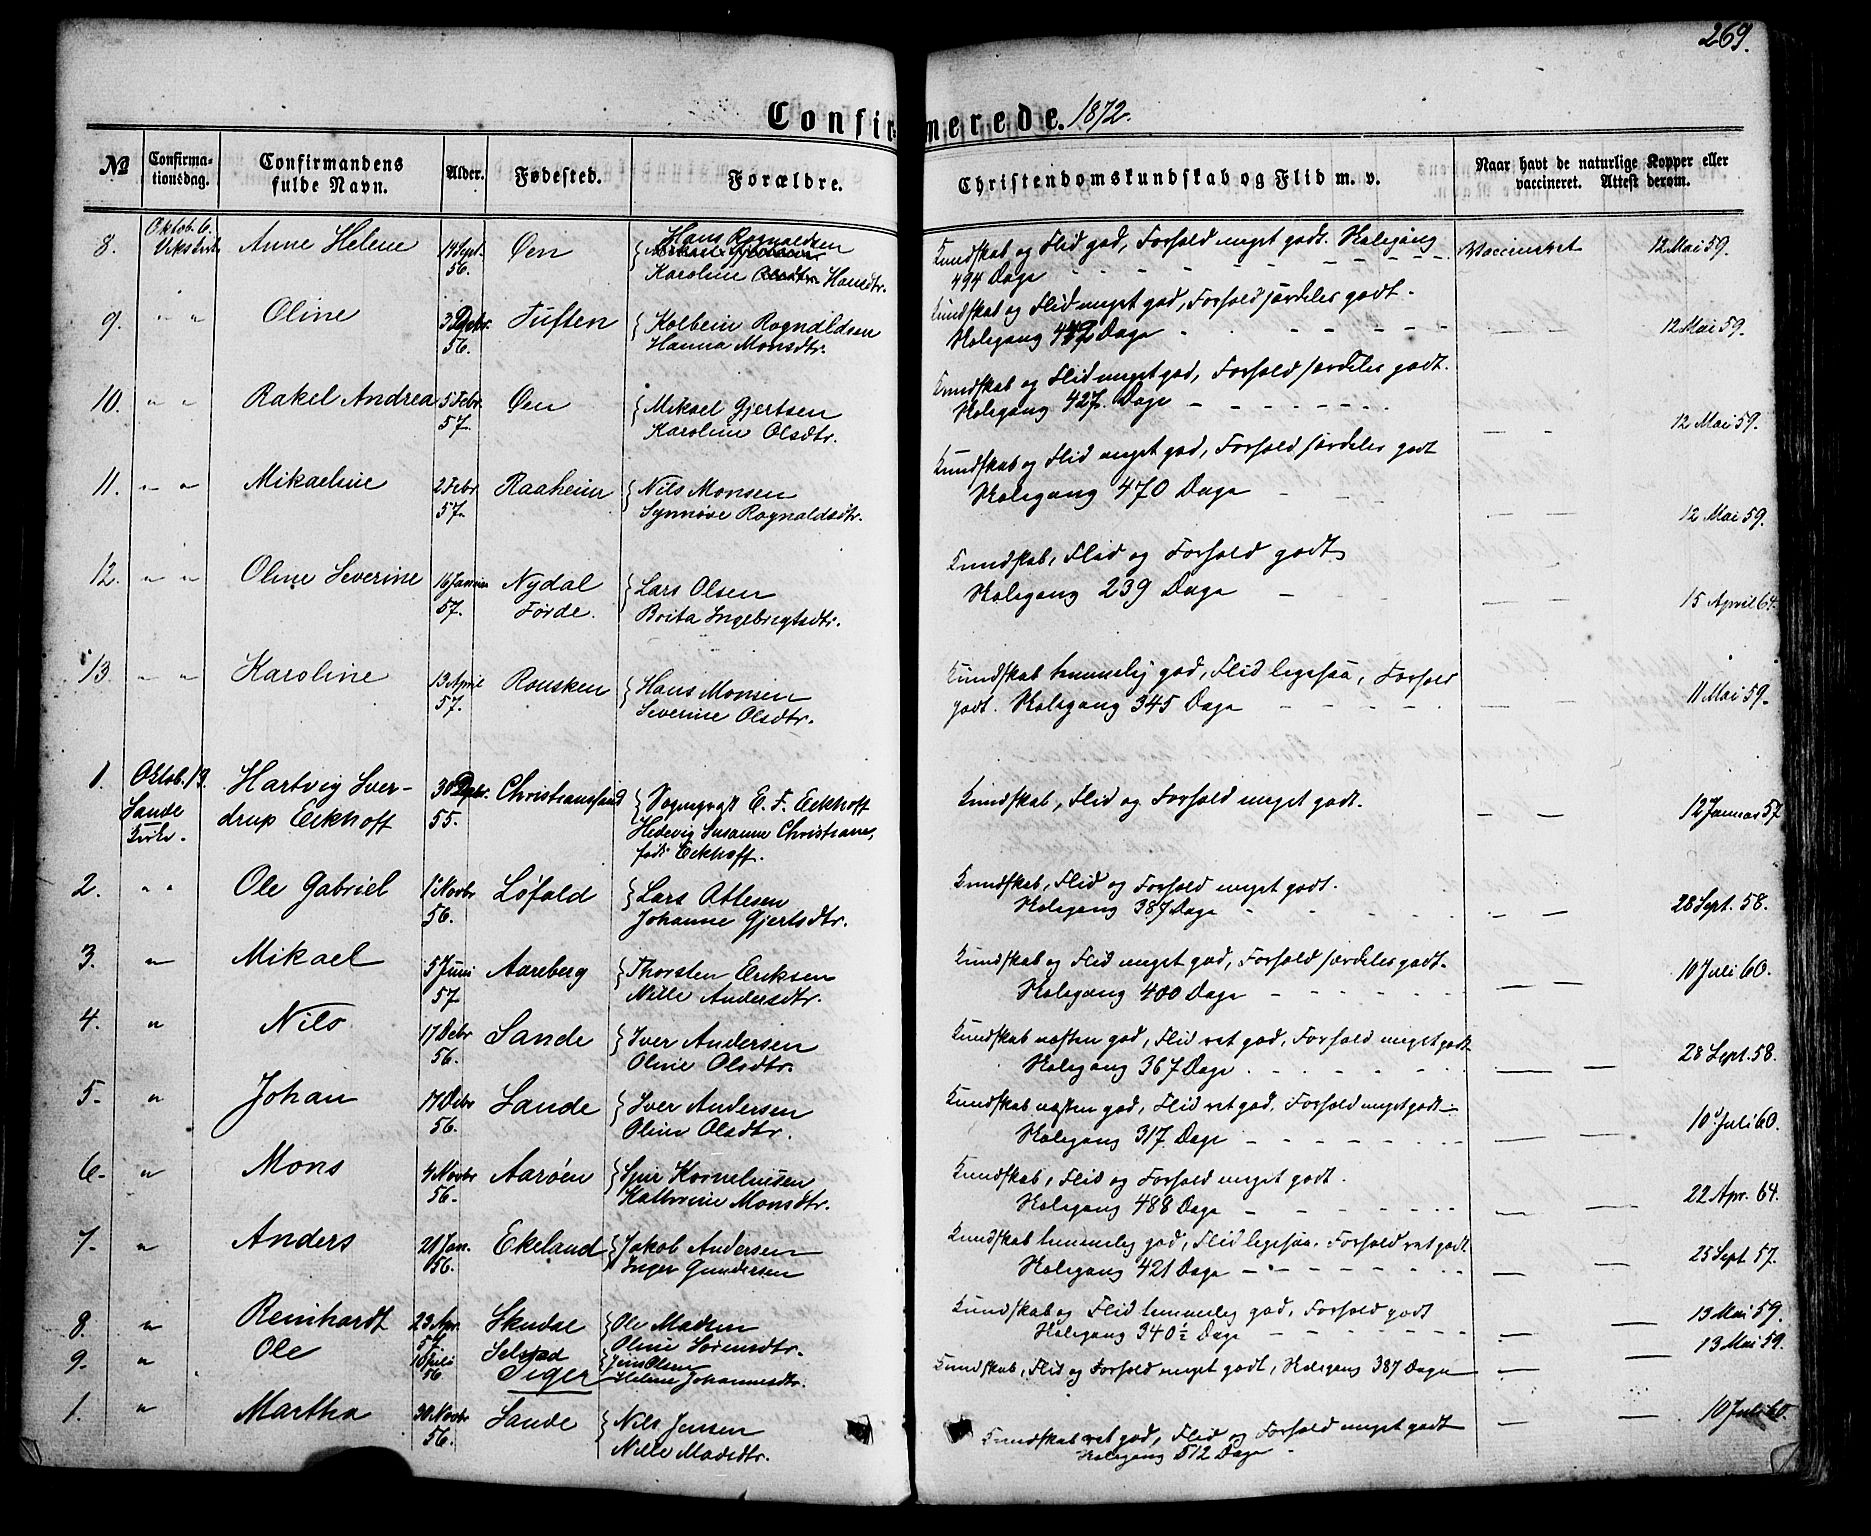 269.
Confirmerede. 1872.
No Confirmationsdag. Confirmandens fulde Navn. Alder. Fødested. Forældre. Christendomskundskab og Flid m. v. Naar havt de naturlige Kopper eller vaccineret. Attest derom.
8. Oktob. 6. Anne Helene 14 Sept. 56. Øen { Hans Rognaldsen
Karoline Hansdtr. Kundskab og Flid god, Forhold meget godt. Skolegang
494 Dage Vaccineret 12 Mai 59.
9. " " Oline 3 Debr. 56. Tuften { Kolbein Rognaldsen
Hanna Monsdtr. Kundskab og Flid meget god, Forhold særdeles godt.
Skolegang Dage 12 Mai 59.
10. " " Rakel Andrea 5 Febr. 57. Øen { Mikael Gjertsen
Karoline Olsdtr. Kundskab og Flid meget god, Forhold særdeles godt.
Skolegang 427 Dage — — 12 Mai 59.
11. " " Mikaeline 2 Febr 57. Raaheim { Nils Monsen
Synnøve Rognaldsdtr. Kundskab og Flid meget god, Forhold særdeles godt
Skolegang 470 Dage — — 12 Mai 59.
12. " " Oline Severine 16 Januar 57. Nydal Førde. { Lars Olsen
Brita Ingebrigtsdtr. Kundskab, Flid og Forhold godt
Skolegang 239 Dage — — 15 April 64.
13. " " Karoline 13 April 57. Rousken { Hans Monsen
Severine Olsdtr. Kundskab temmelig god, Flid ligesaa, Forhold
godt. Skolegang 345 Dage — — 11 Mai 59.
1. Oktob. 13. Sande Kirke. Hartvig Sverdrup Eckhoff 30 55. Christianssand { Sogneprest E. F. Eckhoff
Hedevig Susanne Christiane,
født Eckhoff. Kundskab, Flid og Forhold meget godt. — — 12 Januar 57
2. " " Ole Gabriel 1 Novbr 56. Løfald { Lars Attesen
Johanne Gjertsdtr. Kundskab, Flid og Forhold meget godt.
Skolegang 387 Dage — — 28 Sept. 58.
3. " Mikael 5 Juni 57 Aareberg { Thorsten Eriksen
Nille Andersdtr. Kundskab og Flid meget god, Forhold særdeles godt.
Skolegang 400 Dage — — 10 Juli 60.
4. " Nils 17 Debr 56. Sande { Iver Andersen
Oline Olsdtr. Kundskab næsten god, Flid ret god, Forhold meget godt
Skolegang 367 Dage — — 28 Sept. 58.
5. " Johan 17 Debr 56. Sande { Iver Andersen
Oline Olsdtr. Kundskab næsten god, Flid ret god, Forhold meget godt
Skolegang 317 Dage — — 10 Juli 60.
6. " Mons 4 Novbr 56. Aarøen { Kornelinsen
Kathrine Monsdtr. Kundskab, Flid og Forhold meget godt.
Skolegang 488 Dage — — 22 Apr. 64.
7. " Anders 21 Jan. 56. Ekeland { Jakob Andersen
Inger Gundersen Kundskab temmelig god, Flid ligesaa. Forhold ret godt
Skolegang 421 Dage — — 25 Sept 57.
8. " Reinhardt 23 Apr. 57 Skudal { Ole Madsen
Oline Sørensdtr. Kundskab og Flid temmelig god, Forhold godt
Skolegang 340½ Dage — — 13 Mai 59.
9. " Ole Juli 56 { Jens Olsen
Helene Johannesdtr. Kundskab, Flid og Forhold meget godt, Skolegang 387 Dage — — 13 Mai 59.
1. " Martha 30 Novbr 56. Sande { Nils Jensen
Nille Madsdtr. Kundskab ret god, Flid og Forhold meget godt
Skolegang 512 Dage — — 10 Juli 60.